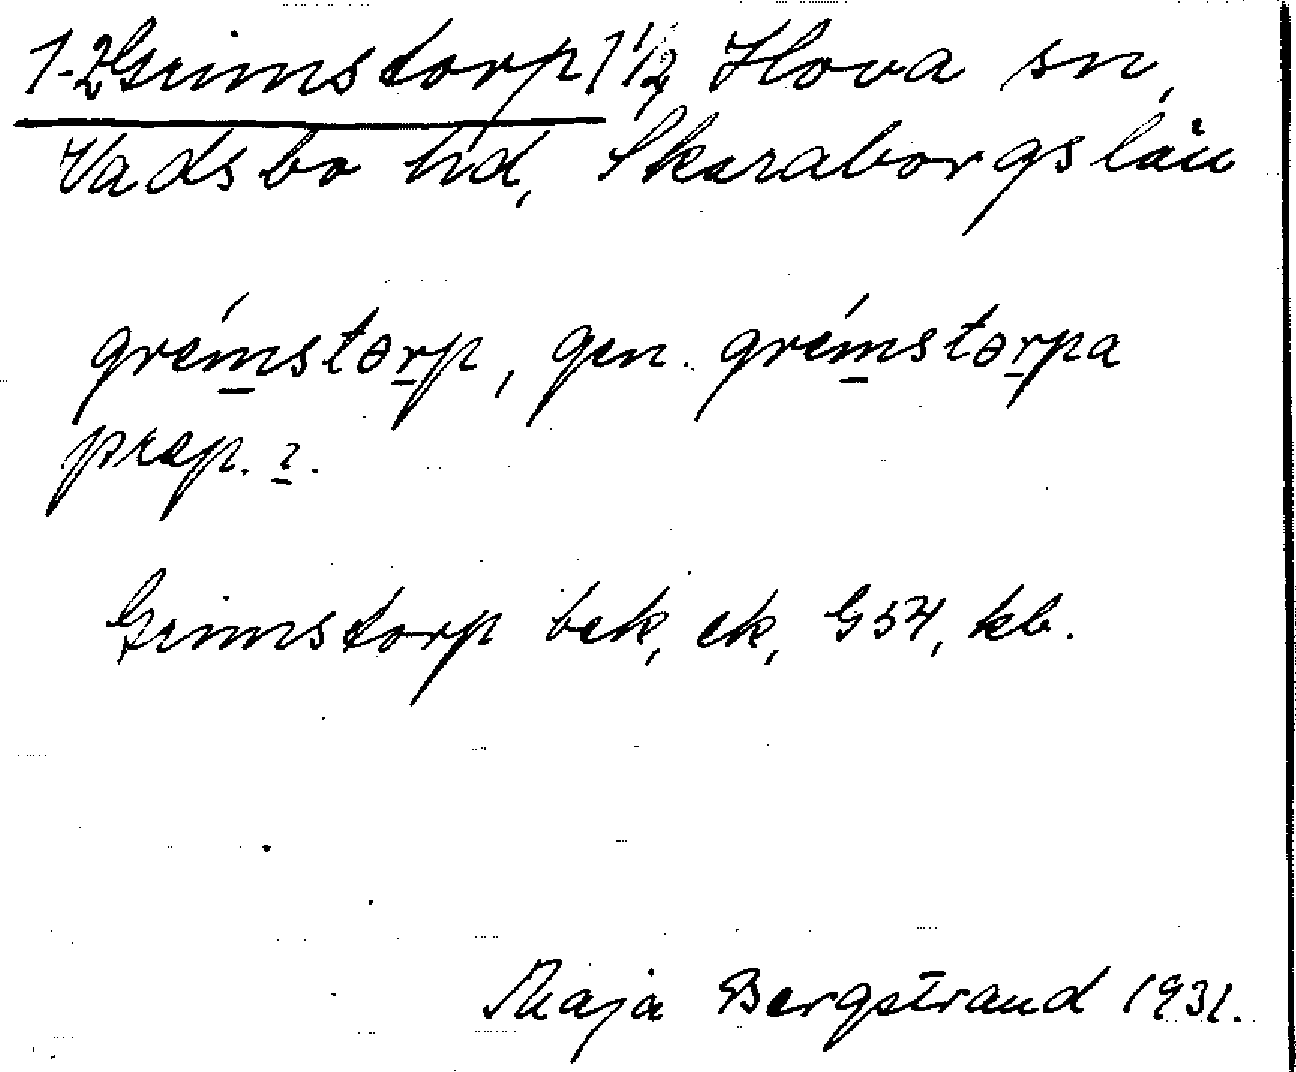 1-2 Grimstorp 1 1/2, Hova sn,
Vadsbo hd, Skaraborgs län
grémstɵrp, gen. grémstɵrpa
prep. ?.
Grimstorp bek, ek, G54, kb.
Maja Bergstrand 1931.